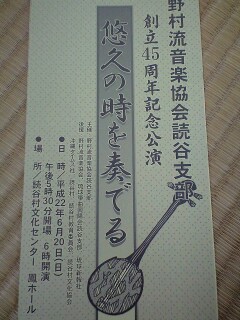 野村流音楽協会読谷支部
創立45周年記念公演
悠久の時を奏でる
主催
後援
●日 時/平成22年6月20日(日)
午後5時30分開場 6時開演
●場 所/読谷村文化センター 鳳ホール